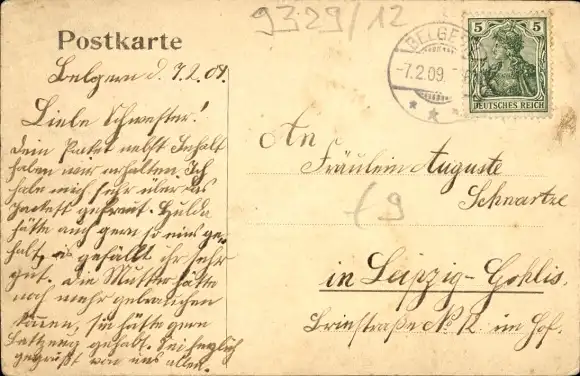 9329/12
Postkarte
BELGERN
-7.2.09.
5 5
DEUTSCHES REICH
Belgern d. 7.2.09.
Liebe Schwester!
Dein Packet nebst Inhalt
haben wir erhalten. Ich
habe mich sehr über das
Jackett gefreut. Hulda
hätte auch gern so eins ge-
habt, es gefällt ihr sehr
gut. Die Mutter hätte
noch mehr gebrauchen
können, sie hätte gern
gehabt. Sei herzlich
gegrüßt von uns allen.
An
Fräulein Auguste
Schwartze
f 9
in Leipzig-Gohlis.
No 12. im Hof.